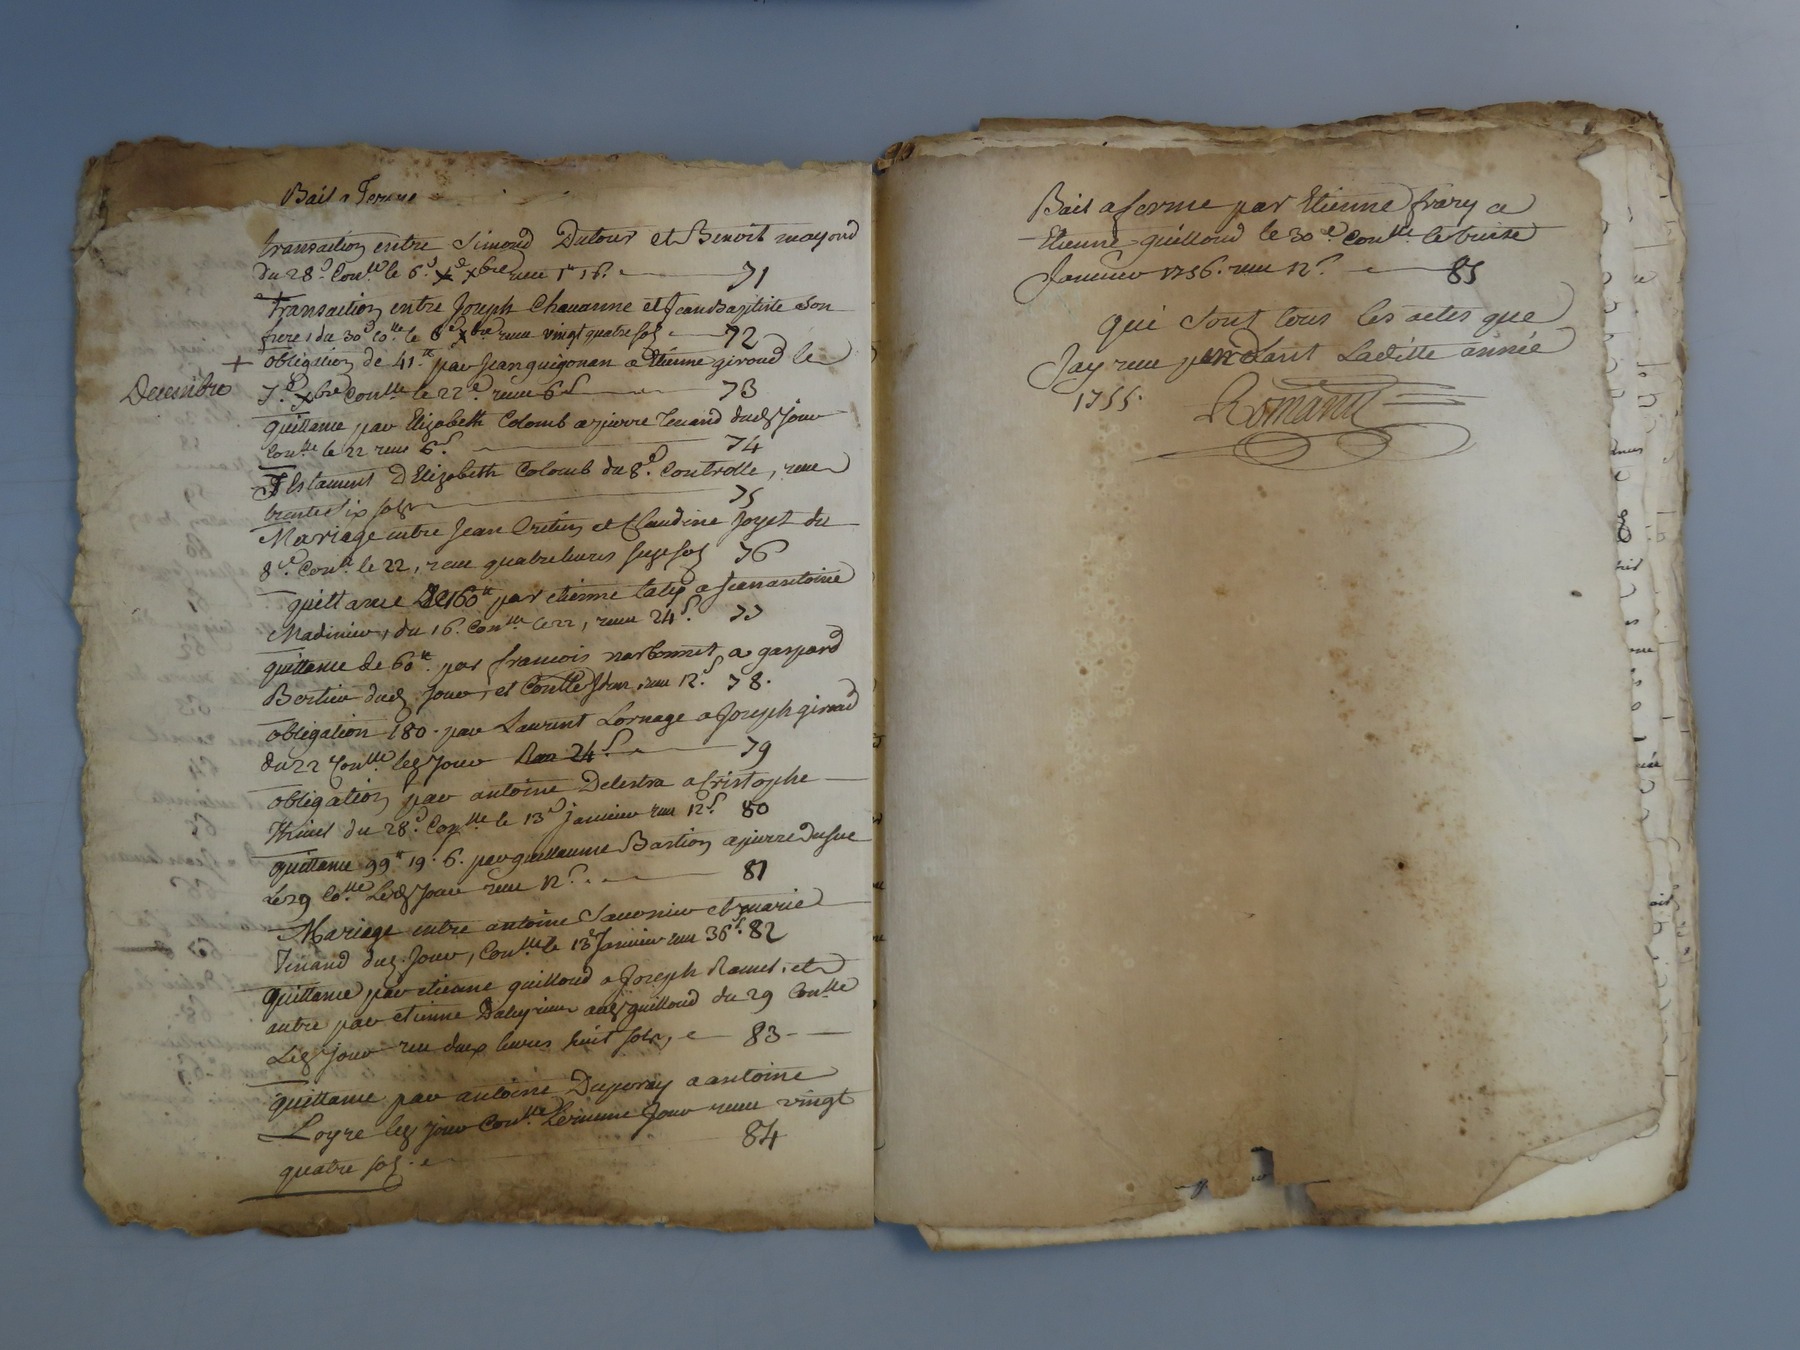 Bail a Ferme
transaction entre Simond Dutour et Benoit mayoud
du 28e. Contlle le 6e. Xbre reçu 1lt 16.s 71
transaction entre Joseph Chavanne et Jean Baptiste son
frere, du 30e Colle. le 6e Xbre reçu vingt quatre sols 72
+ obligation de 41lt. par Jean guigonan a Etienne giroud le
Decembre 7.e Xbre Contlle le 22e. reçu 6s 73
quittance par Elizabeth Colomb a pierre Tenand dud jour
Contlle le 22 reçu 6s. 74
Testament D'Elizabeth Colomb du 8e. Controllé, reçu
trente six sols 75
Mariage entre Jean Cretin et Claudine Joyet du
8e. Contlle. le 22, reçu quatre livres seize sols 76
quittance De 160lt par etienne a Jean antoine
Madinier, du 16. Contlle le 22, reçu 24s. 77
quittance de 60lt. par francois narbonnet a gaspard
Bertier dud. jour, et Contlle reçu 12s. 78.
obligation 180. par Laurent Lornage a Joseph giroud
du 22 Contlle led jour Reçu 24s. 79
obligation par antoine Delestra a Cristophe
du 28e. Contlle le 13e janvier reçu 12s. 80
quittance 99lt 19s. 6. par guillaume Bastion a pierre Dusue
Le 29 Colle Led Jour reçu 12s. 81
Mariage entre antoine Savonier et marie
Tenand dud. Jour, Contlle le 13e Janvier reçu 36s. 82
Quittance par etienne guilloud a Joseph Ramel, et
autre par etienne aud guilloud du 29 Contlle
Led jour reçu deux livres huit sols, 83
quittance par antoine Dupuray a antoine
Loyre led jour Contlle Le meme Jour reçu vingt
quatre sols. 84
Bail a ferme par Etienne frary a
Etienne guilloud le 30e. Contlle. le treize
Janvier 1756. reçu 12s. 85
qui sont tous les actes que
Jay reçu pendant Laditte année
1755.
Romand